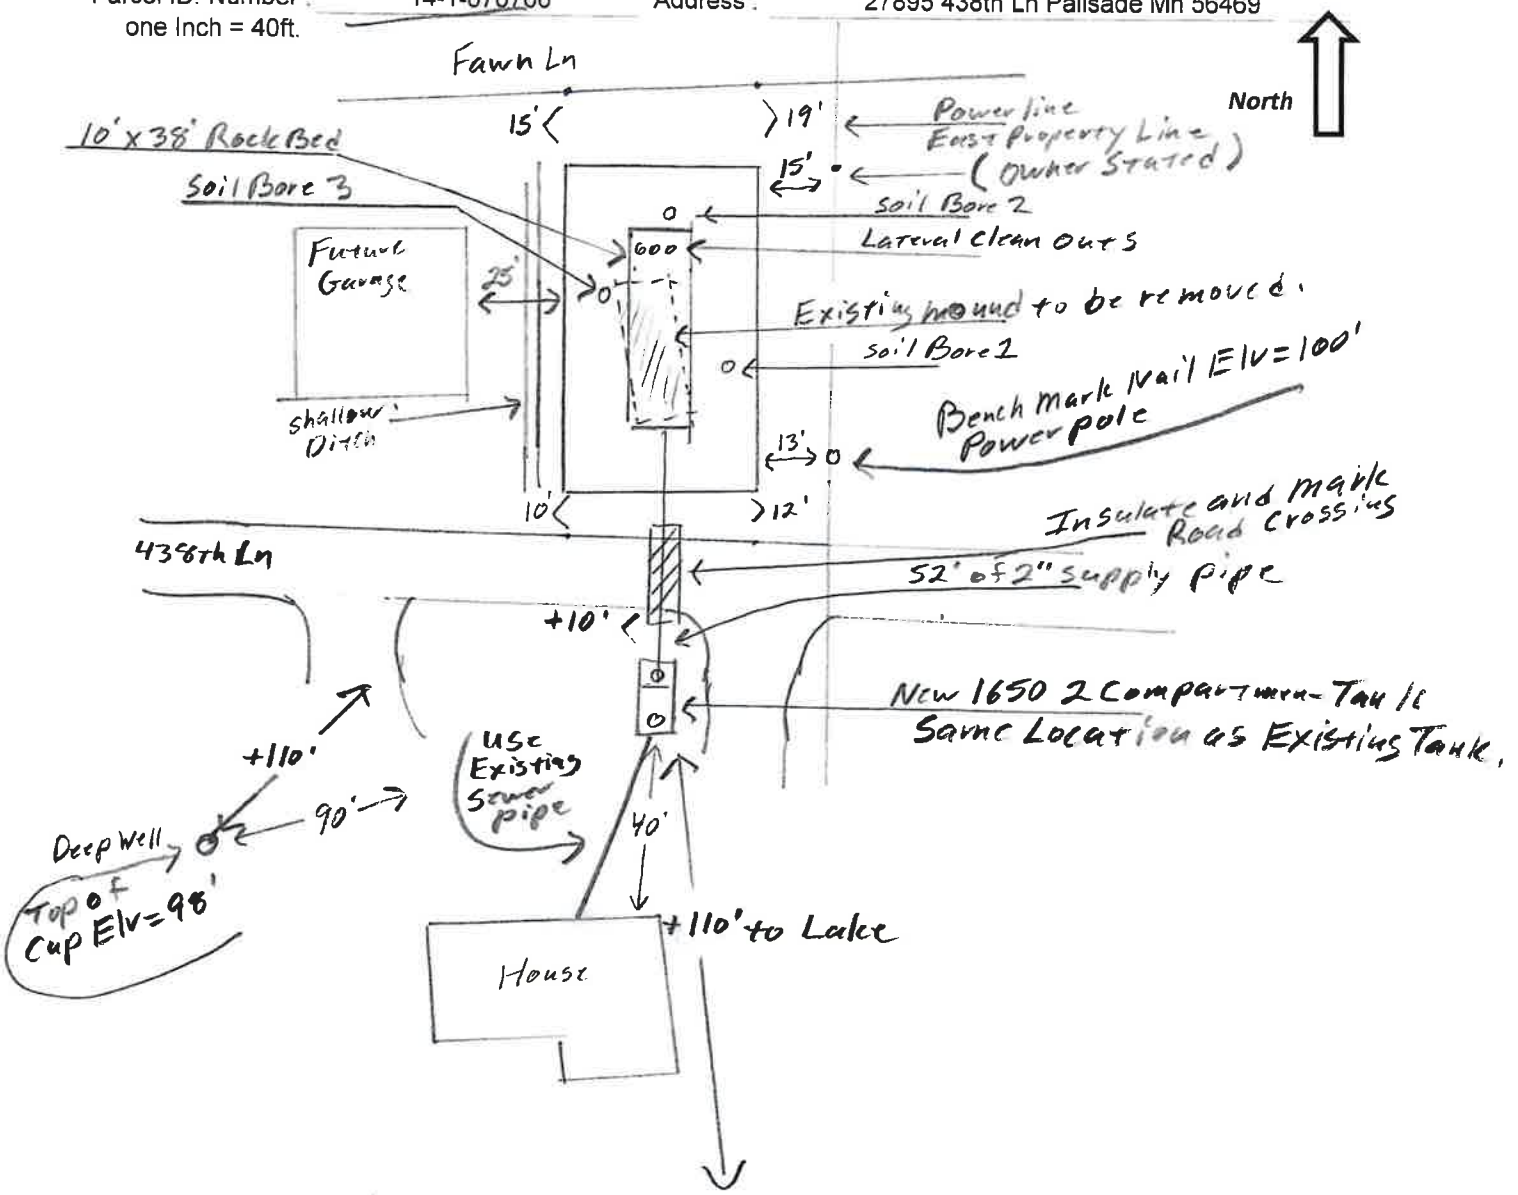 Parcel ID. Number :
Address :
27895 438th Ln Palisade Mn 56469
one Inch = 40ft.
Fawn Ln
North
15'
19'
Powerline
East Property Line
(Owner Stated)
10' x 38' Rock Bed
15'
Soil Bore 3
Soil Bore 2
Lateral Clean outs
Future
Garage
25'
Existing mound to be removed.
Soil Bore 1
Bench Mark Nail Elv=100'
Power pole
shallow
Ditch
13'
10'
12'
Insulate and Mark
Road Crossing
438th Ln
52' of 2" supply pipe
+10'
New 1650 2 Compartmen-Tank
Same Location as Existing Tank.
+110'
90'
Use
Existing
Sewer
pipe
40'
Deep Well
Top of
Cap Elv=98'
+110' to Lake
House